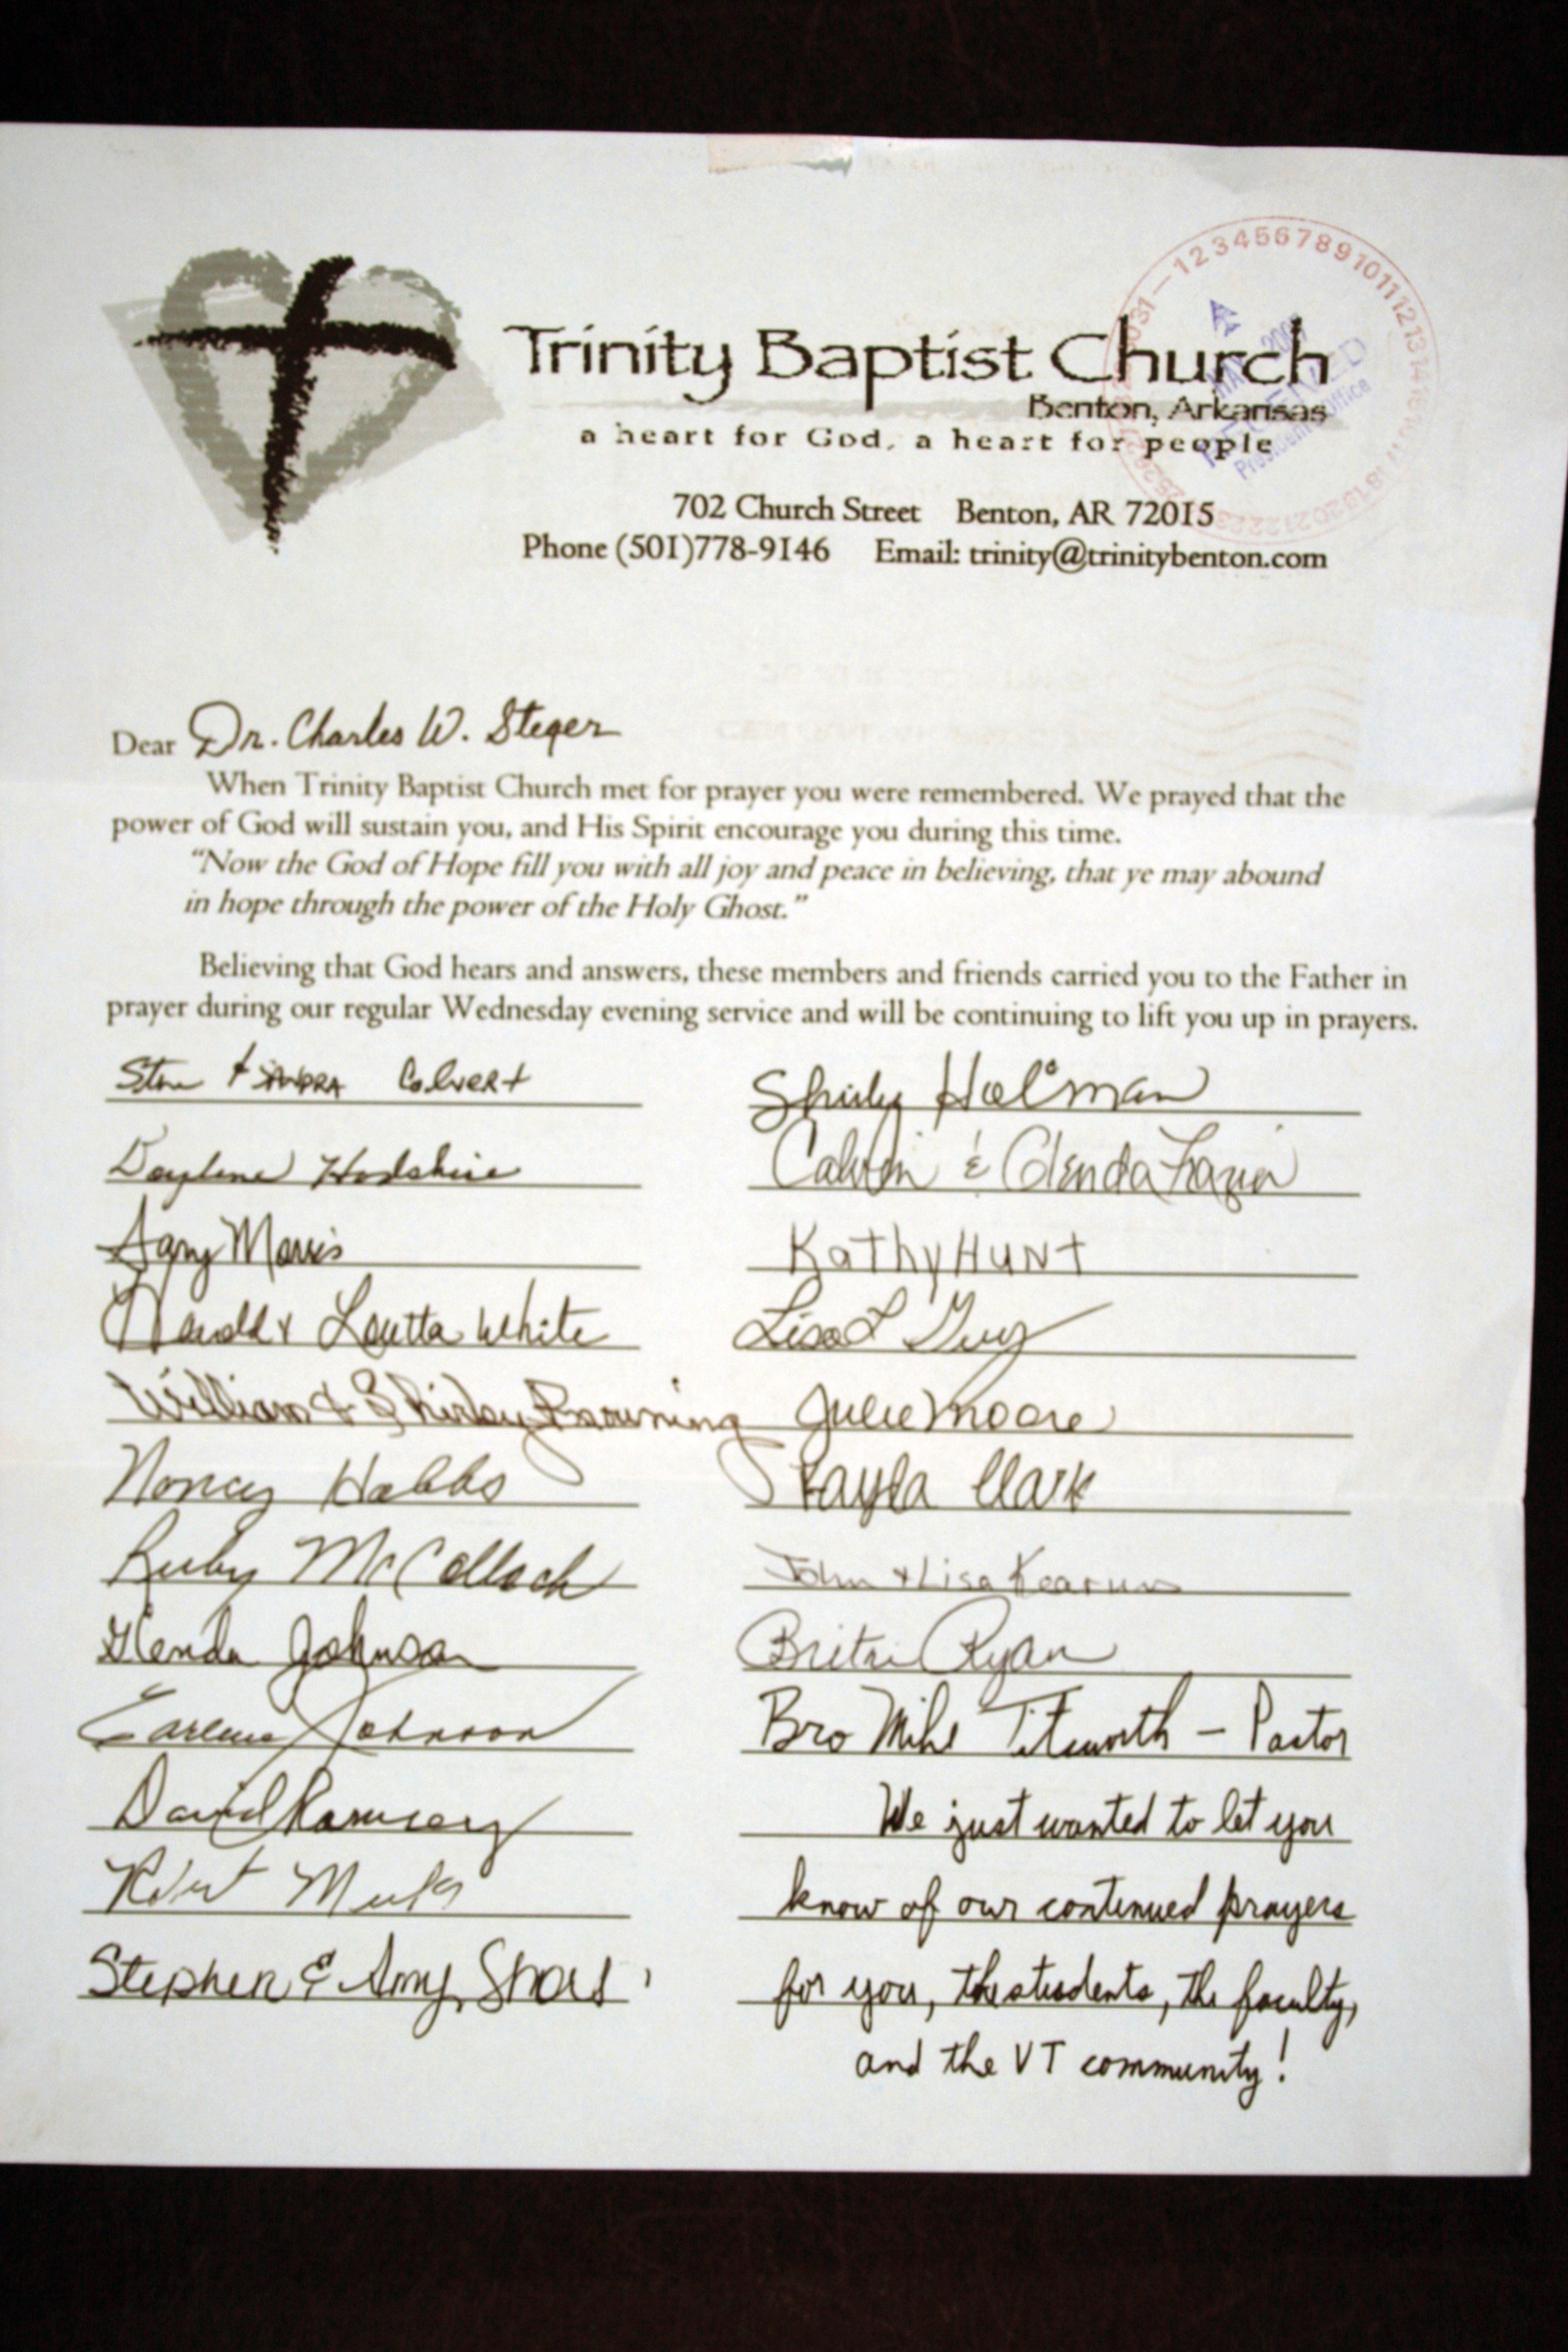 Trinity Baptist Church
Benton, Arkansas
a heart for God, a heart for people
702 Church Street Benton, AR 72015
Phone (501)778-9146 Email: trinity@trinitybenton.com
1 2 3 4 5 6 7 8 9 10 11 12 13 14
RECEIVED
President's Office
Dear Dr. Charles W. Steger
When Trinity Baptist Church met for prayer you were remembered. We prayed that the
power of God will sustain you, and His Spirit encourage you during this time.
"Now the God of Hope fill you with all joy and peace in believing, that ye may abound
in hope through the power of the Holy Ghost."
Believing that God hears and answers, these members and friends carried you to the Father in
prayer during our regular Wednesday evening service and will be continuing to lift you up in prayers.
Calvert
Shirley Holman
Calvin & Glenda
Morris
Kathy Hunt
& Loretta White
Lisa L Guy
William & Shirley Browning
Julie Moore
Nancy Hobbs
Kayla Clark
Ruby McColloch
John & Lisa
Glenda Johnson
Ryan
Earlene Johnson
Bro Mike Titsworth - Pastor
David Ramsey
We just wanted to let you
Robert
know of our continued prayers
Stephen & Amy
for you, the students, the faculty,
and the VT community!